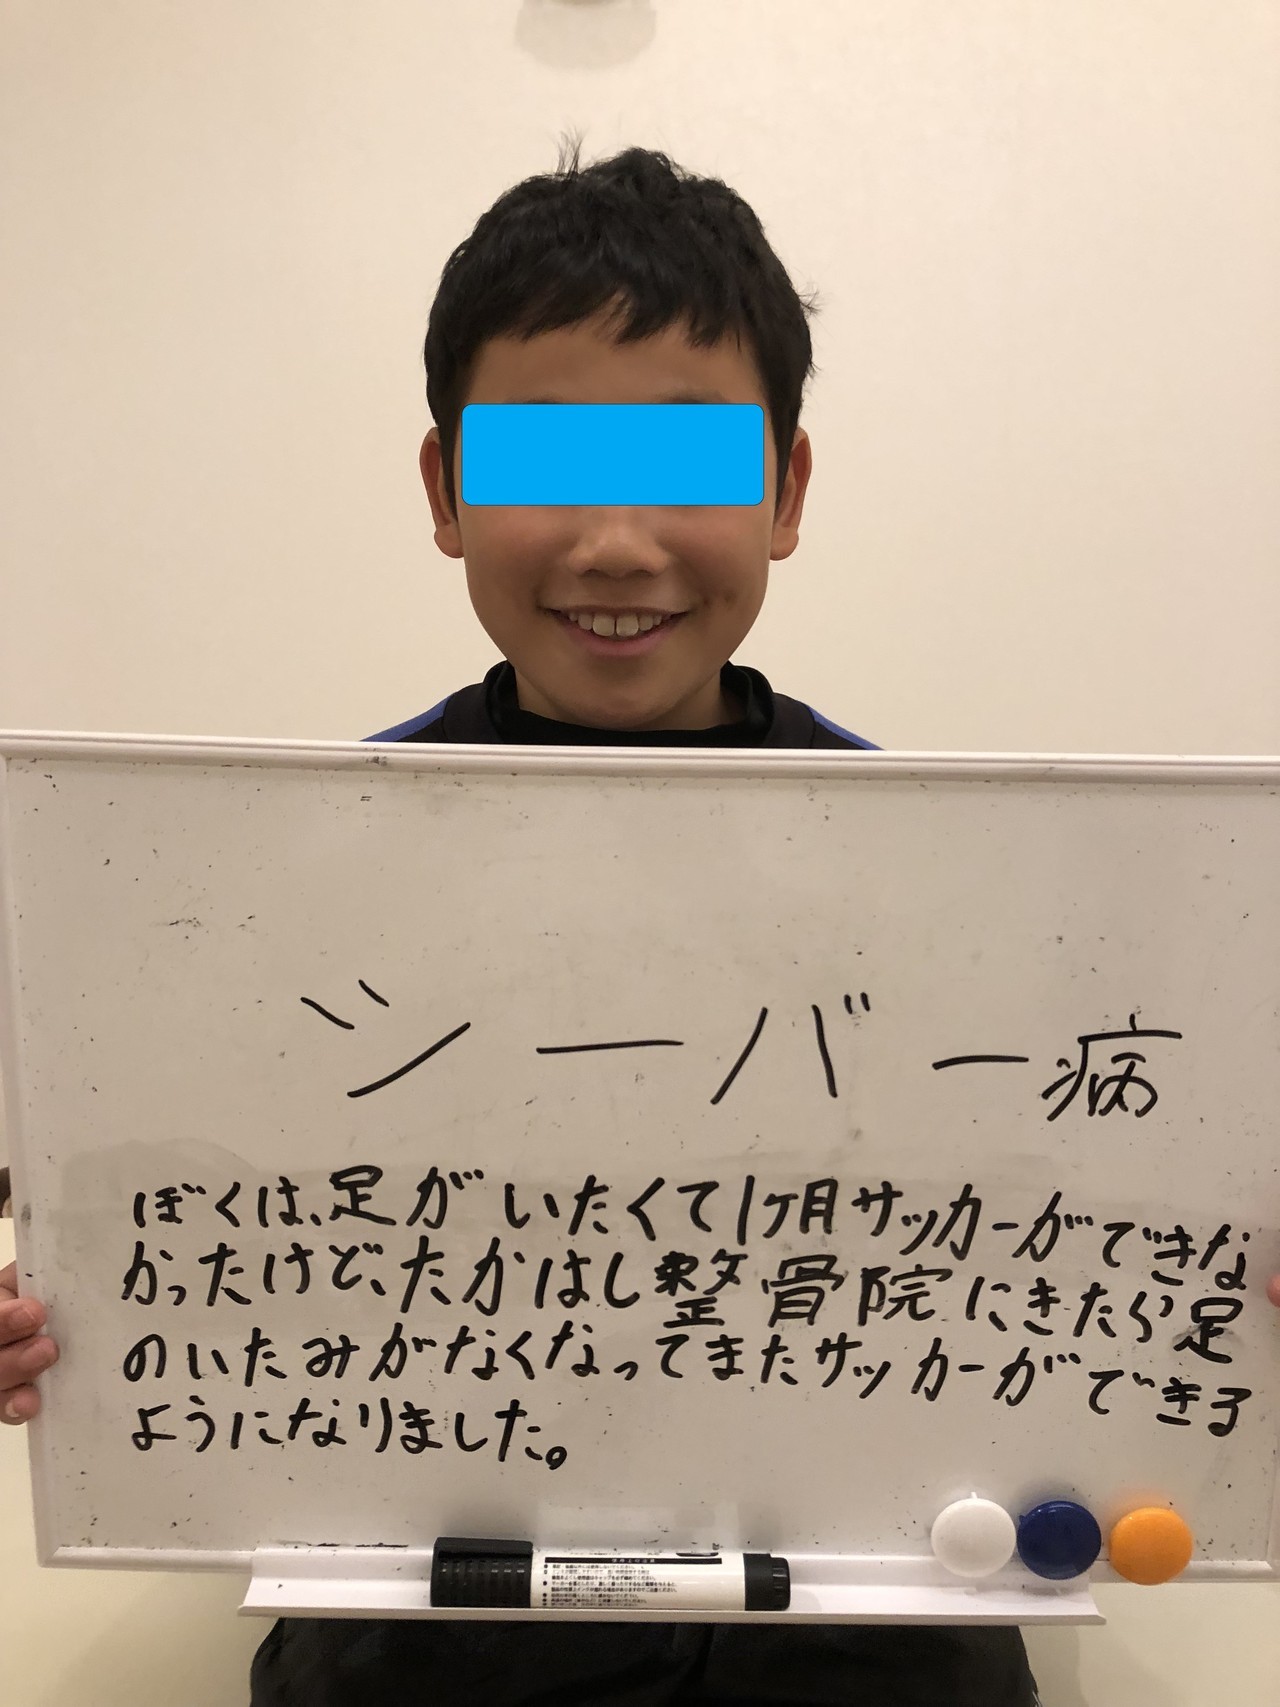 シーバー病
ぼくは、足がいたくて1ヶ月サッカーができな
かったけど、たかはし整骨院にきたら足
のいたみがなくなってまたサッカーができる
ようになりました。